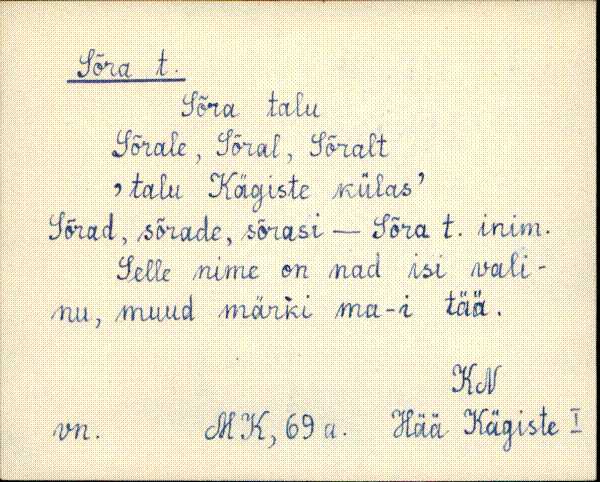 Sõra t.
Sõra talu
Sõrale, Sõral, Sõralt
‚talu Kägiste külas’
Sõrad, sõrade, sõrasi — Sõra t. inim.
Selle nime on nad isi vali-
nu, muud märki ma-i tää.
KN
vn. MK, 69 a. Hää Kägiste I